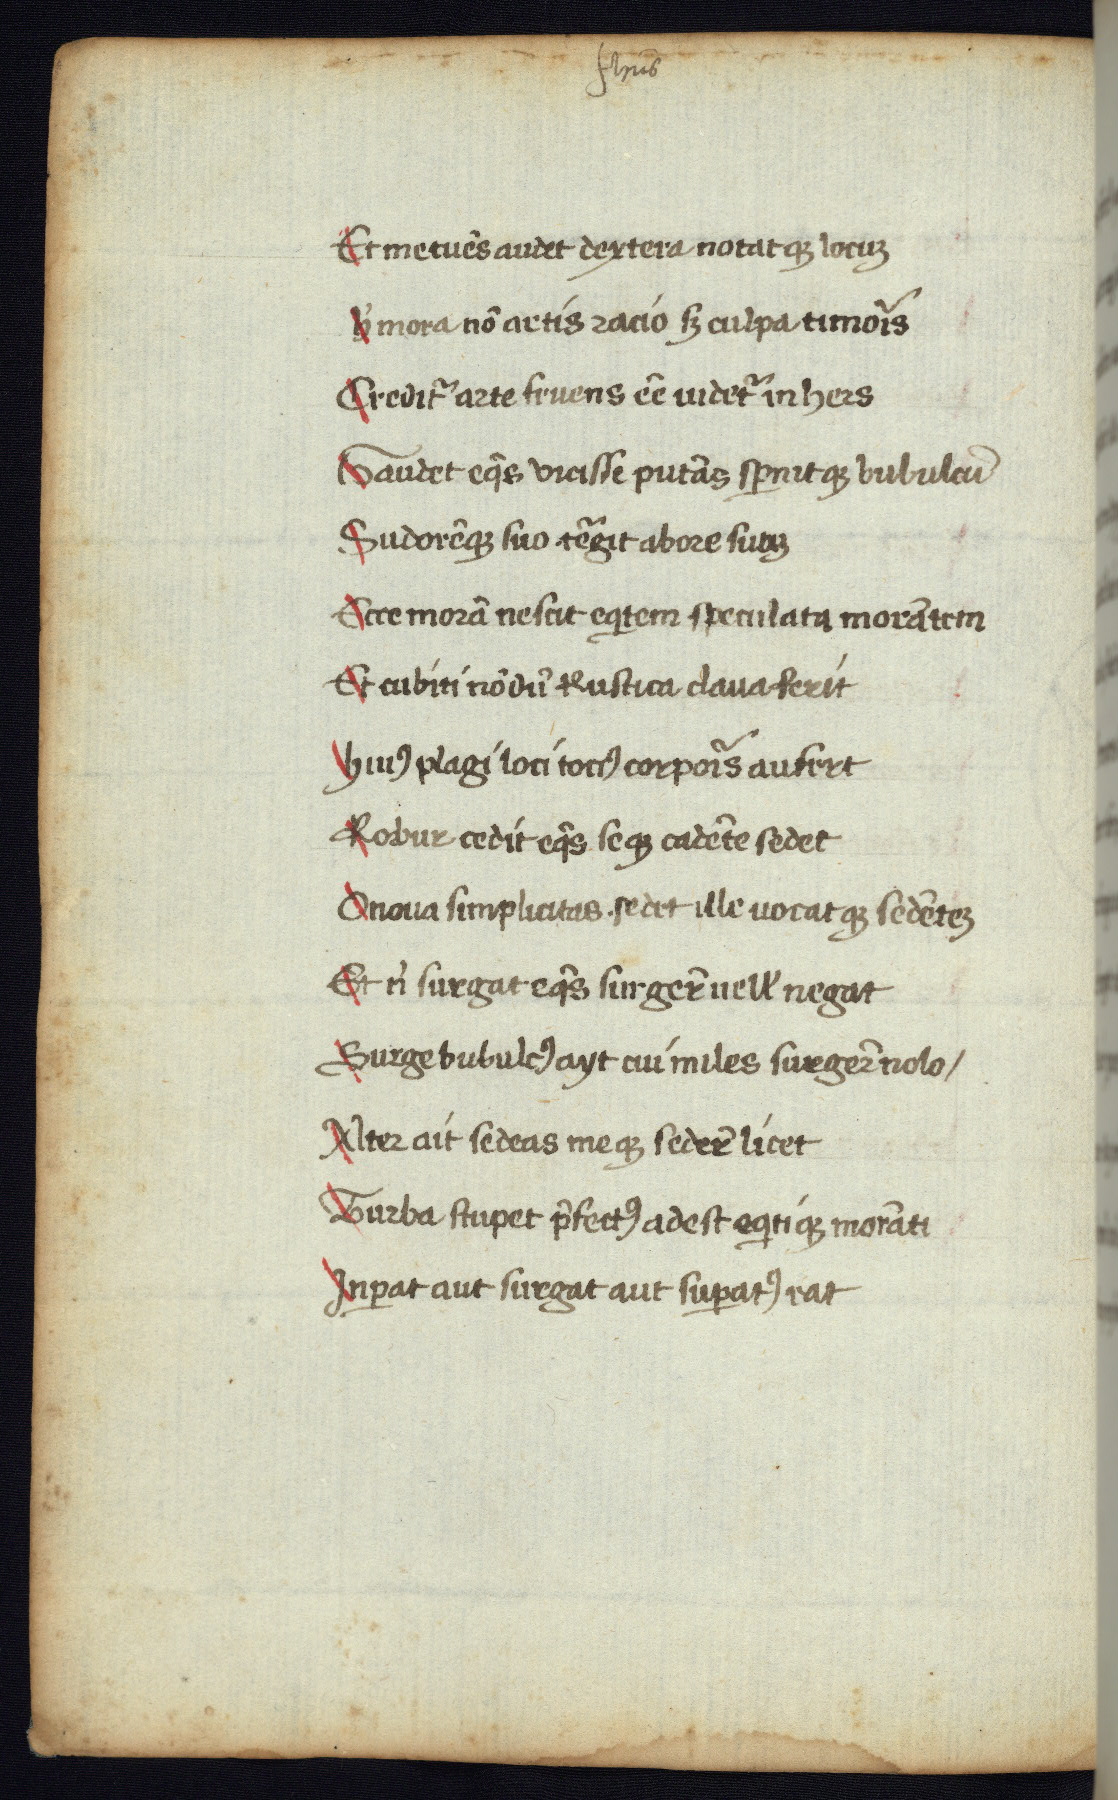 Et metuēs audet dextera notatqꝫ locuꝫ
h̓ mora nō artis racio sꝫ culpa timor̄is
Credit᷑ arte fruens eē uidet᷑ in hers
Gaudet eq̄s vicisse putās sp̄nitqꝫ bubulcū
Sudorēqꝫ suo t̄git abore suuꝫ
Ecce morā nescit eqtem speculata morātem
Et cubiti nōdū rustica claua ferit
huiꝰ plagi loci tociꝰ corpor̄is aufert
Robur cedit eq̄s seqꝫ cadēte sedet
O noua simplicitas sedet ille uocatqꝫ sedēteꝫ
Et n̄ surgat eq̄s surger̄ uell̓ negat
Surge bubulcꝰ ayt cui miles surger̄ nolo/
Alter ait sedeas meqꝫ seder̄ licet
Turba stupet p̄fectꝰ adest eqtiqꝫ morāti
Inꝑat aut surgat aut suꝑatꝰ eat